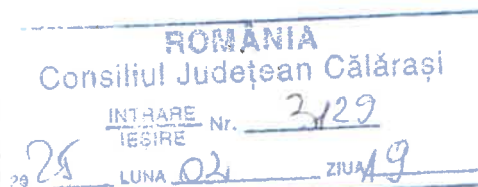 ROMÂNIA
Consiliul Județean Călărași
INTRARE
IEȘIRE Nr. 3129
20 25 LUNA 02 ZIUA 19